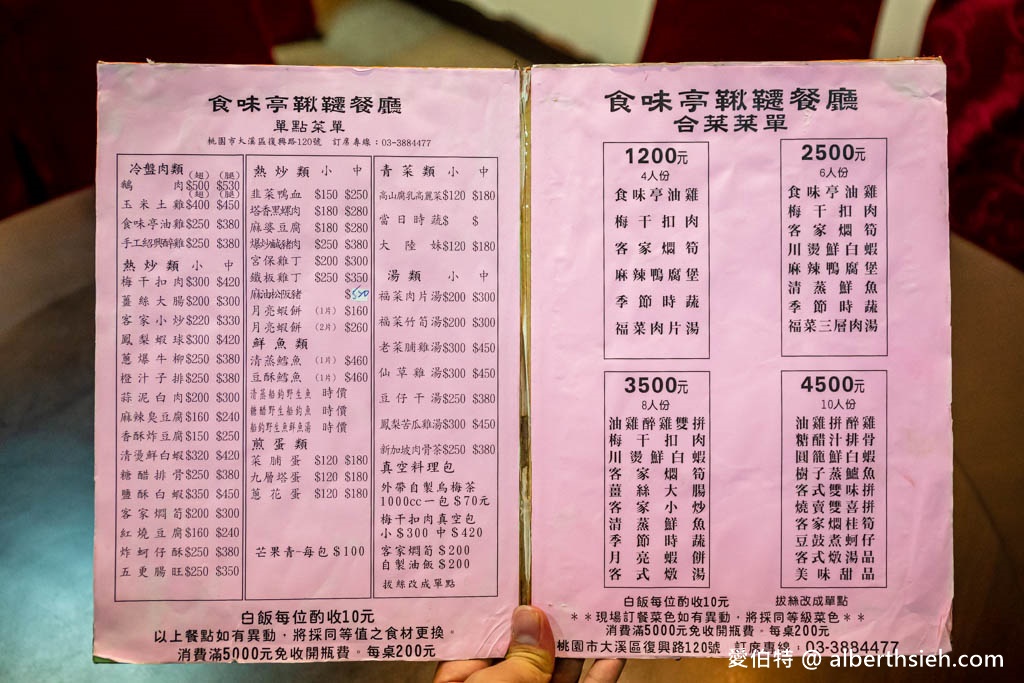 食味亭鞦韆餐廳
單點菜單
桃園市大溪區復興路120號 訂席專線：03-3884477
冷盤肉類 (翅) (腿)
鵝肉$500 $530
(翅) (腿)
玉米土雞$400 $450
食味亭油雞$250 $380
手工紹興醉雞$250 $380
熱炒類 小 中
梅干扣肉$300 $420
薑絲大腸$200 $300
客家小炒$220 $330
鳳梨蝦球$300 $420
蔥爆牛柳$250 $380
橙汁子排$250 $380
蒜泥白肉$200 $300
麻辣臭豆腐$160 $240
香酥炸豆腐$150 $250
清燙鮮白蝦$320 $420
糖醋排骨$250 $380
鹽酥白蝦$350 $450
客家燜筍$200 $300
紅燒豆腐$160 $240
炸蚵仔酥$250 $380
五更腸旺$250 $350
熱炒類 小 中
韭菜鴨血 $150 $250
塔香黑螺肉 $180 $280
麻婆豆腐 $180 $280
爆炒鹹豬肉 $250 $380
宮保雞丁 $200 $300
鐵板雞丁 $250 $350
麻油松阪豬 $ 550
月亮蝦餅 (1片) $160
月亮蝦餅 (2片) $260
鮮魚類
清蒸鱈魚 (1片) $460
豆酥鱈魚 (1片) $460
清蒸船釣野生魚 時價
糖醋野生船釣魚 時價
船釣野生魚鮮魚湯 時價
煎蛋類
菜脯蛋 $120 $180
九層塔蛋 $120 $180
蔥花蛋 $120 $180
芒果青-每包$100
青菜類 小 中
高山腐乳高麗菜$120 $180
當日時蔬$ $
大陸妹$120 $180
湯類 小 中
福菜肉片湯$200 $300
福菜竹筍湯$200 $300
老菜脯雞湯$300 $450
仙草雞湯$300 $450
豆仔干湯$250 $380
鳳梨苦瓜雞湯$300 $450
新加坡肉骨茶$250 $380
真空料理包
外帶自製烏梅茶
1000cc一包$70元
梅干扣肉真空包
小$300 中$420
客家燜筍$200
自製油飯$200
拔絲改成單點
白飯每位酌收10元
以上餐點如有異動，將採同等值之食材更換。
消費滿5000元免收開瓶費。每桌200元
食味亭鞦韆餐廳
合菜菜單
1200元
4人份
食味亭油雞
梅干扣肉
客家燜筍
麻辣鴨腐堡
季節時蔬
福菜肉片湯
2500元
6人份
食味亭油雞
梅干扣肉
客家燜筍
川燙鮮白蝦
麻辣鴨腐堡
清蒸鮮魚
季節時蔬
福菜三層肉湯
3500元
8人份
油雞醉雞雙拼
梅干扣肉
川燙鮮白蝦
客家燜筍
薑絲大腸
客家小炒
清蒸鮮魚
季節時蔬
月亮蝦餅
客式燉湯
4500元
10人份
油雞拼醉雞
糖醋汁排骨
圓籠鮮白蝦
樹子蒸鱸魚
客式雙味拼
燒賣雙喜拼
客家燜桂筍
豆鼓煮蚵仔
客式燉湯品
美味甜品
白飯每位酌收10元 拔絲改成單點
**現場訂餐菜色如有異動，將採同等級菜色**
消費滿5000元免收開瓶費。每桌200元
桃園市大溪區復興路120號 訂席專線：03-3884477
愛伯特 @ alberthsieh.com